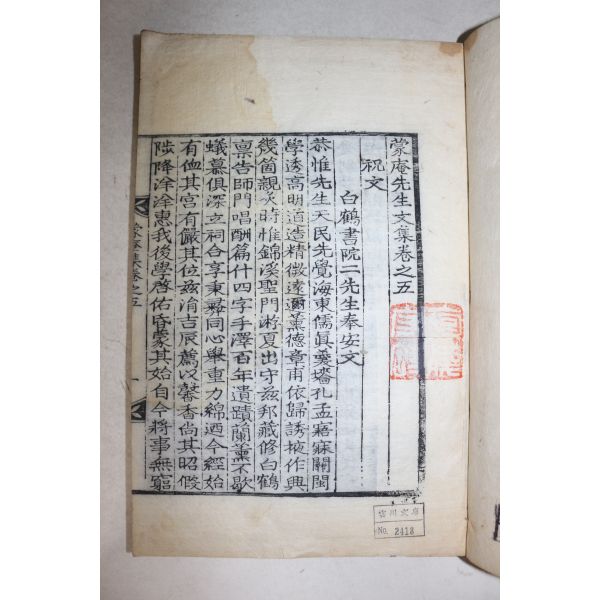 蒙庵先生文集卷之五
祝文
白鶴書院二先生奉安文
恭惟先生天民先覺海東儒眞羹墻孔孟寤寐關閩
學透高明道造精微遠邇薰德章甫依歸誘掖作興
幾箇親炙時惟錦溪聖門游夏出守玆邦藏修白鶴
稟告師門唱酬篇什四字手澤百年遺蹟蘭薰不歇
蟻慕俱深立祠合享秉彛同心擧重力綿迺今經始
有侐其宮有儼其位玆涓吉辰薦以馨香尚其昭假
陟降涂涂惠我後學啓佑昏蒙其始自今將事無窮
蒙庵集卷之五
一
No. 2418